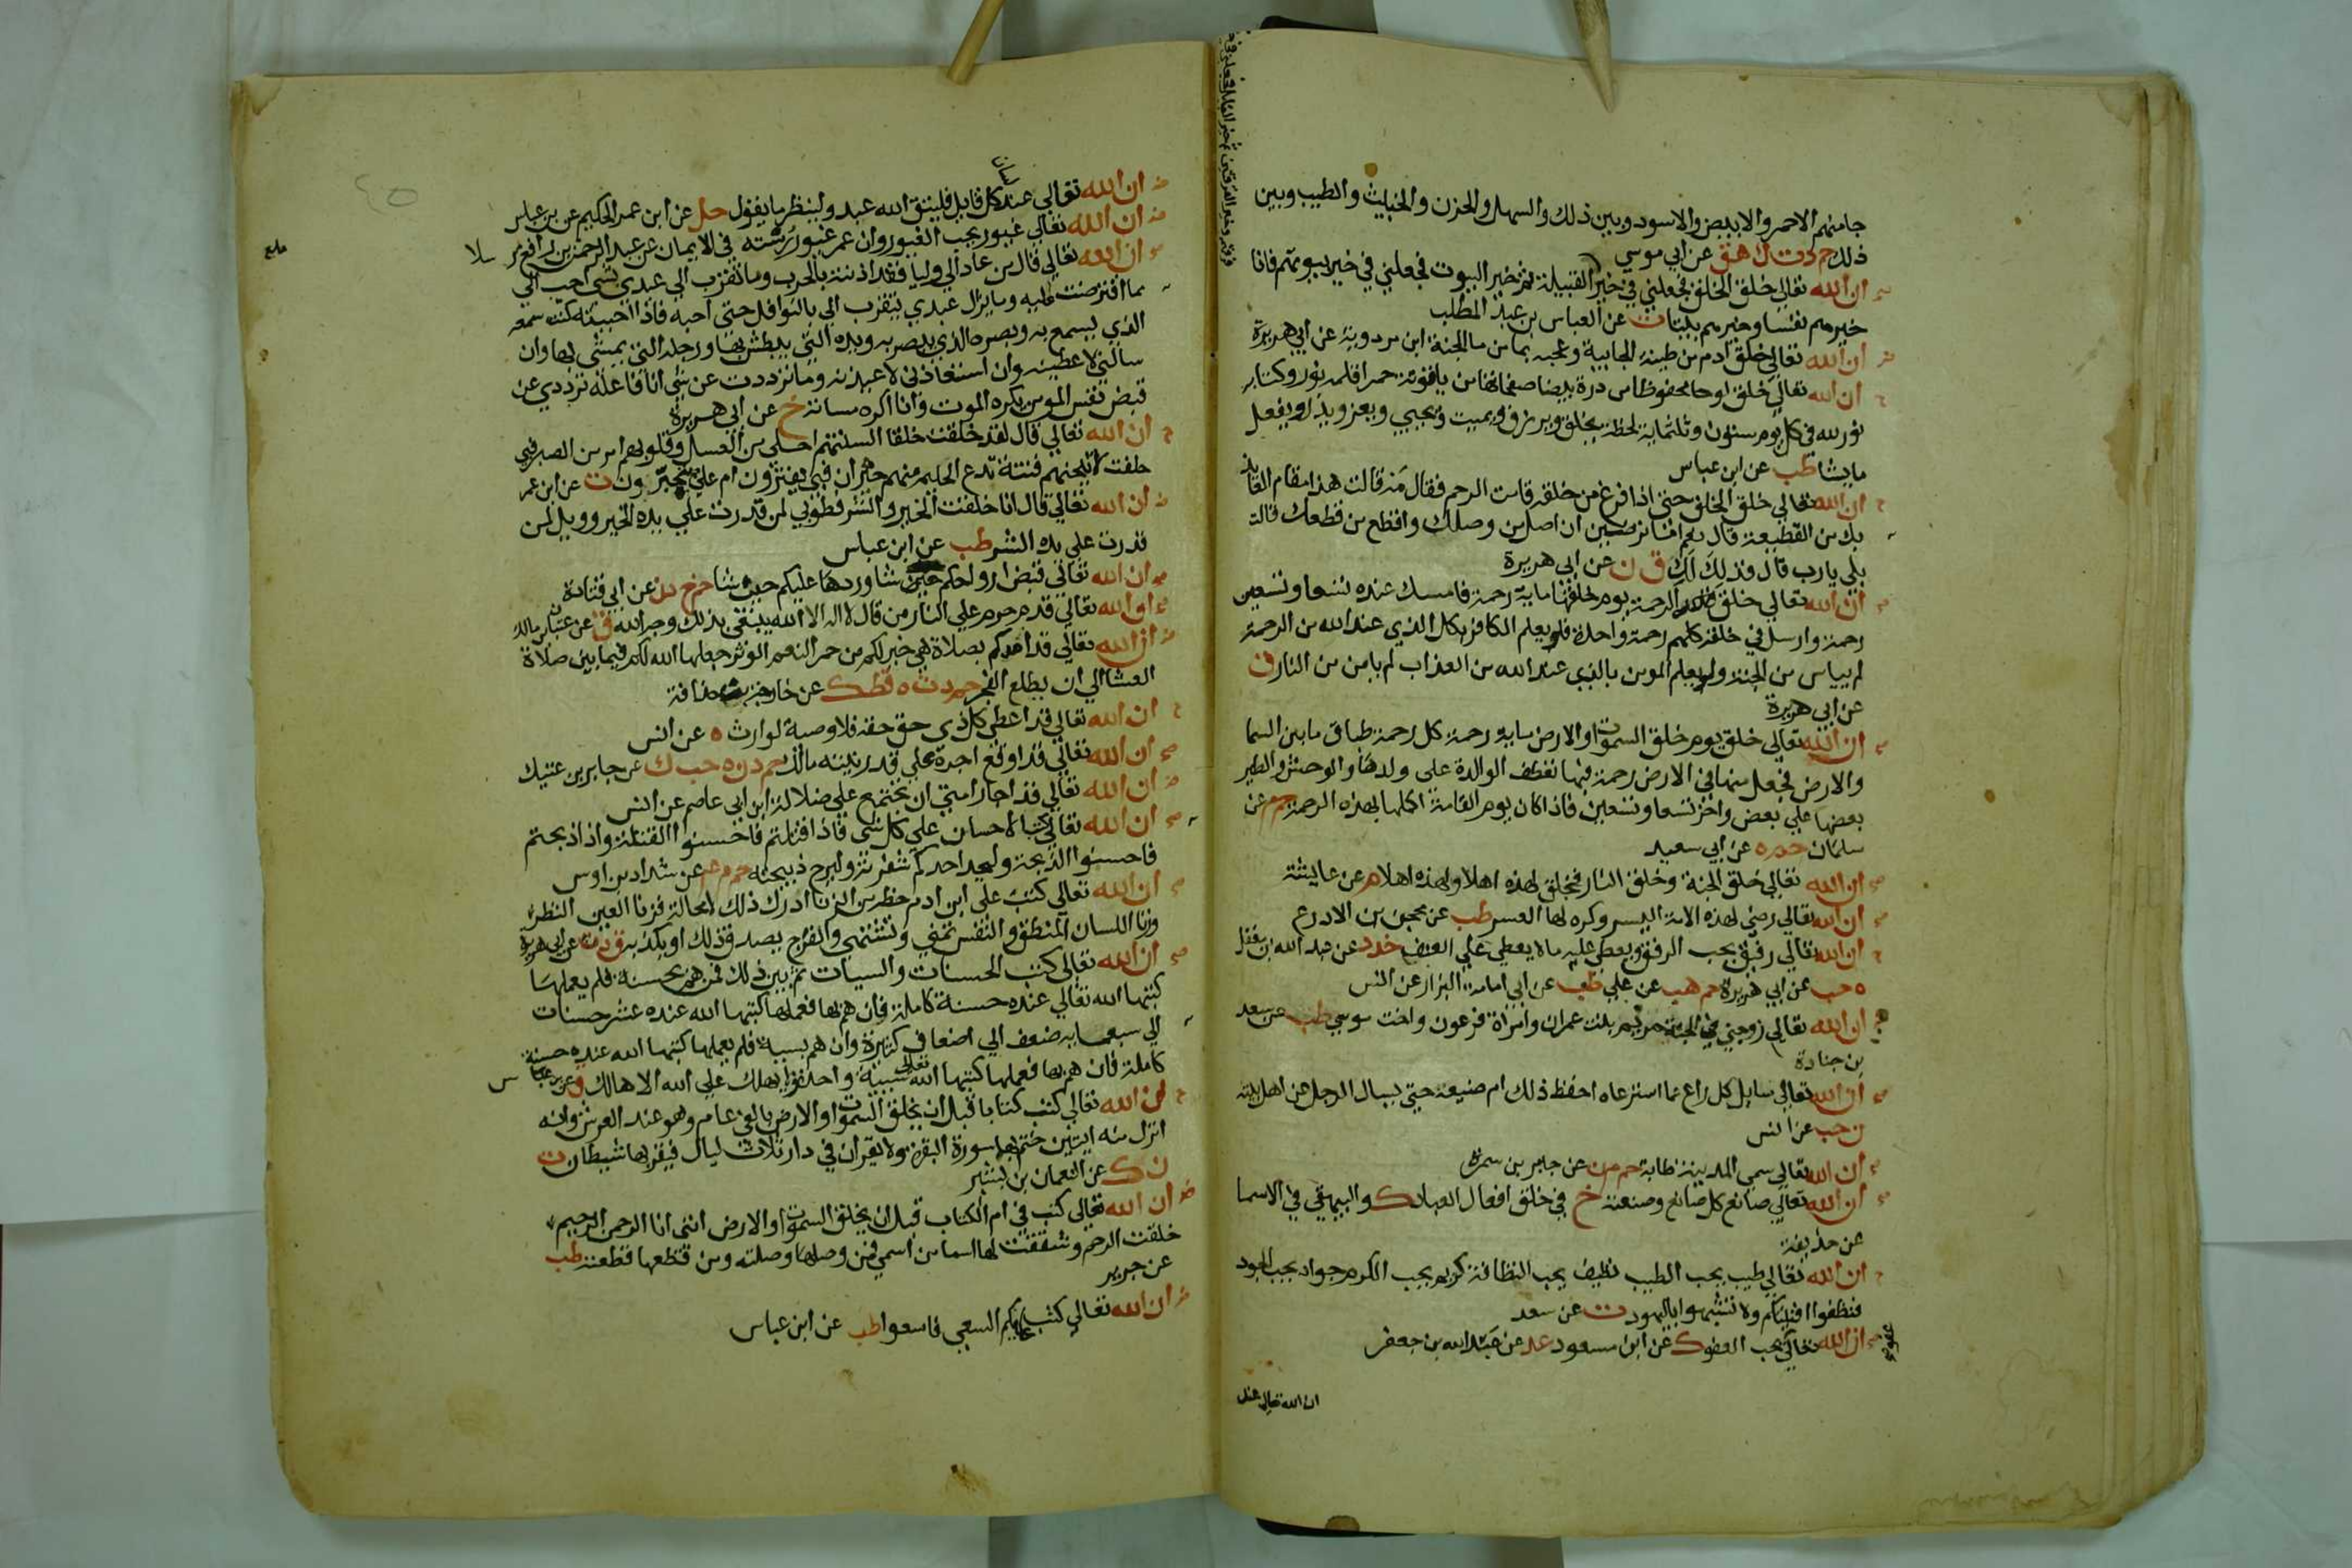 جا منهم الاحمر والابيض والاسود وبين ذلك والسهل والحزن والخبيث والطيب وبين
ذلك حم د ت ك هق عن ابي موسي
ان الله تعالي خلق الخلق فجعلني في خير القبيلة ثم خير البيوت فجعلني في خير بيوتهم فانا
خيرهم نفسا وخيرهم بيتا ت عن العباس بن عبد المطلب
ان الله تعالي خلق ادم من طينة الجابية وعجنه بما من ما الجنة ابن مردوية عن ابي هريرة
ان الله تعالي خلق لوحا محفوظا من درة بيضا صفحاتها من ياقوتة حمرا قلمه نور وكتابه
نور لله في كل يوم ستون وثلثماية لحظة يخلق ويرزق ويميت ويحيي ويعز ويذل ويفعل
ما يشا طب عن ابن عباس
ان الله تعالي خلق الخلق حتي اذا فرغ من خلقه قامت الرحم فقال مه قالت هذا مقام العايذ
بك من القطيعة قال نعم اما ترضين ان اصل من وصلك واقطع من قطعك قالت
بلي يا رب قال فذلك لك ق ن عن ابي هريرة
ان الله تعالي خلق الرحمة يوم خلقها ماية رحمة فامسك عنده تسعا وتسعين
رحمة وارسل في خلقه كلهم رحمة واحدة فلو يعلم الكافر بكل الذي عند الله من الرحمة
لم يياس من الجنة ولو يعلم المومن بالذي عند الله من العذاب لم يامن من النار ق
عن ابي هريرة
ان الله تعالي خلق يوم خلق السموات والارض ماية رحمة كل رحمة طباق ما بين السما
والارض فجعل منها في الارض رحمة فبها تعطف الوالدة علي ولدها والوحش والطير
بعضها علي بعض واخر تسعا وتسعين فاذا كان يوم القيامة اكملها بهذه الرحمة حم م عن
سلمان حم ه عن ابي سعيد
ان الله تعالي خلق الجنة وخلق النار فخلق لهذه اهلا ولهذه اهلا م عن عايشة
ان الله تعالي رضي لهذه الامة اليسر وكره لها العسر طب عن محجن بن الادرع
ان الله تعالي رفيق يحب الرفق ويعطي عليه ما لا يعطي علي العنف خد د عن عبد الله بن مغفل
ه حب عن ابي هريرة حم هب عن علي طب عن ابي امامة البزار عن انس
ان الله تعالي زوجني في الجنة مريم بنت عمران وامراة فرعون واخت موسي طب عن سعد
بن جنادة
ان الله تعالي سايل كل راع عما استرعاه احفظ ذلك ام ضيعه حتي يسال الرجل عن اهل بيته
ن حب عن انس
ان الله تعالي سمي المدينة طابة حم م ن عن جابر بن سمرة
ان الله تعالي صانع كل صانع وصنعته خ في خلق افعال العباد ك والبيهقي في الاسما
عن حذيفة
ان الله تعالي طيب يحب الطيب نظيف يحب النظافة كريم يحب الكرم جواد يحب الجود
فنظفوا افنيتكم ولا تشبهوا باليهود ت عن سعد
ان الله تعالي عفو يحب العفو ك عن ابن مسعود عد عن عبد الله بن جعفر
ان الله تعالي عند
ان الله تعالي عند لسان كل قايل فليتق الله عبد ولينظر ما يقول حل عن ابن عمر الحكيم عن بن عباس
ان الله تعالي غيور يحب الغيور وان عمر غيور رسته في الايمان عن عبد الرحمن بن رافع مرسلا
ان الله تعالي قال من عادا لي وليا فقد اذنته بالحرب وما تقرب الي عبدي بشي احب الي
مما افترضت عليه وما يزال عبدي يتقرب الي بالنوافل حتي احبه فاذا احببته كنت سمعه
الذي يسمع به وبصره الذي يبصر به ويده التي يبطش بها ورجله التي يمشي بها وان
سالني لاعطينه وان استعاذني لاعيذنه وما ترددت عن شي انا فاعله ترددي عن
قبض نفس المومن يكره الموت وانا اكره مساته خ عن ابي هريرة
ان الله تعالي قال لقد خلقت خلقا السنتهم احلي من العسل وقلوبهم امر من الصبر فبي
حلفت لاتيحنهم فتنة تدع الحليم منهم حيران فبي يغترون ام علي يجترون ت عن ابن عمر
ان الله تعالي قال انا خلقت الخير والشر فطوبي لمن قدرت علي يده الخير وويل لمن
قدرت علي يده الشر طب عن ابن عباس
ان الله تعالي قبض ارواحكم حين شا وردها عليكم حين شا حم خ د ن عن ابي قتادة
ان الله تعالي قد حرم علي النار من قال لا اله الا الله يبتغي بذلك وجه الله ق عن عتبان بن مالك
ان الله تعالي قد امدكم بصلاة هي خير لكم من حمر النعم الوتر جعلها الله لكم فيما بين صلاة
العشا الي ان يطلع الفجر حم د ت ه قط ك عن خارجة بن حذافة
ان الله تعالي قد اعطي كل ذي حق حقه فلا وصية لوارث ه عن انس
ان الله تعالي قد اوقع اجره علي قدر نيته مالك حم د ن ه حب ك عن جابر بن عتيك
ان الله تعالي قد اجار امتي ان تجتمع علي ضلالة ابن ابي عاصم عن انس
ان الله تعالي كتب الاحسان علي كل شي فاذا قتلتم فاحسنوا القتلة واذا ذبحتم
فاحسنوا الذبحة وليحد احدكم شفرته وليرح ذبيحته حم م عم عن شداد بن اوس
ان الله تعالي كتب علي ابن ادم حظه من الزنا ادرك ذلك لا محالة فزنا العين النظر
وزنا اللسان المنطق والنفس تمني وتشتهي والفرج يصدق ذلك او يكذبه ق د ن عن ابي هريرة
ان الله تعالي كتب الحسنات والسيات ثم بين ذلك فمن هم بحسنة فلم يعملها
كتبها الله تعالي عنده حسنة كاملة فان هم بها فعملها كتبها الله عنده عشر حسنات
الي سبعماية ضعف الي اضعاف كثيرة وان هم بسيية فلم يعملها كتبها الله عنده حسنة
كاملة فان هم بها فعملها كتبها الله تعالي سيية واحدة ولا يهلك علي الله الا هالك ق عن بن عباس
ان الله تعالي كتب كتابا قبل ان يخلق السموات والارض بالفي عام وهو عند العرش وانه
انزل منه ايتين ختم بهما سورة البقرة ولا يقران في دار ثلاث ليال فيقربها شيطان ت
ن ك عن النعمان بن بشير
ان الله تعالي كتب في ام الكتاب قبل ان يخلق السموات والارض انني انا الرحمن الرحيم
خلقت الرحم وشققت لها اسما من اسمي فمن وصلها وصلته ومن قطعها قطعته طب
عن جرير
ان الله تعالي كتب عليكم السعي فاسعوا طب عن ابن عباس